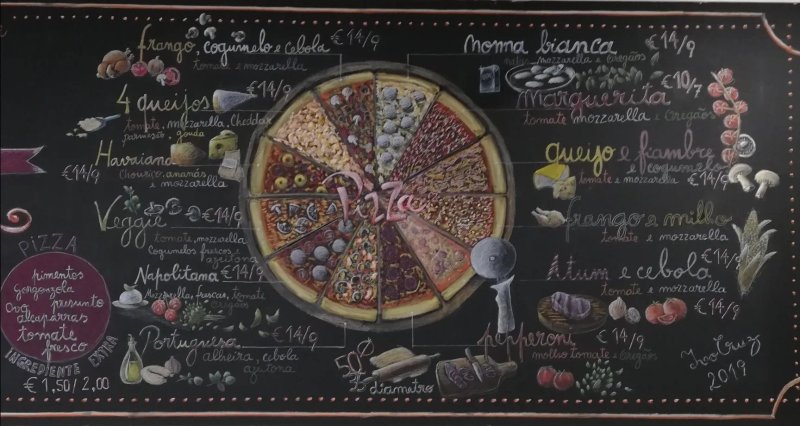 frango, cogumelo e cebola €14/9
tomate e mozzarella
4 queijos €14/9
tomate, mozzarella, Cheddar
parmesão gouda
Havaiana €14/9
Chourico, ananás
e mozzarella
Veggie €14/9
tomate, mozzarella
Cogumelos frescos e
azeitona
Napolitana €14/9
Mozzarella, frescas, tomate
Portuguesa €14/9
alheira, cebola
azeitona
PIZZA
pimentos
Gorgonzola
Ovo presunto
alcaparras
tomate
fresco
INGREDIENTE EXTRA
€ 1,50/2,00
Pizza
nonna bianca €14/9
natas, mozzarella e oregãos
Marguerita €10/7
tomate mozzarella e oregãos
queijo e fiambre
e cogumelo
tomate e mozzarella €14/9
frango e milho
tomate e mozzarella €14/9
Atum e cebola
tomate e mozzarella €14/9
pepperoni €14/9
molho tomate e oregãos
50
35 diametro
Ivo Cruz
2019